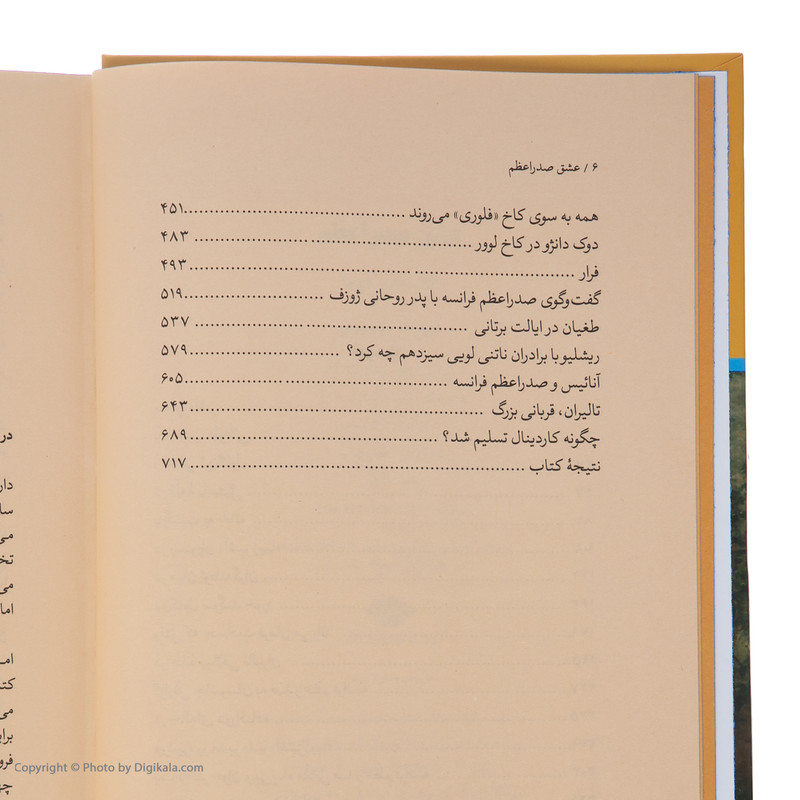 ۶ / عشق صدراعظم
همه به سوی کاخ «فلوری» می‌روند ........................................ ۴۵۱
دوک دانژو در کاخ لوور ........................................ ۴۸۳
فرار ........................................ ۴۹۳
گفت‌وگوی صدراعظم فرانسه با پدر روحانی ژوزف ........................................ ۵۱۹
طغیان در ایالت برتانی ........................................ ۵۳۷
ریشلیو با برادران ناتنی لویی سیزدهم چه کرد؟ ........................................ ۵۷۹
آنائیس و صدراعظم فرانسه ........................................ ۶۰۵
تالیران، قربانی بزرگ ........................................ ۶۴۳
چگونه کاردینال تسلیم شد؟ ........................................ ۶۸۹
نتیجهٔ کتاب ........................................ ۷۱۷
Copyright © Photo by Digikala.com